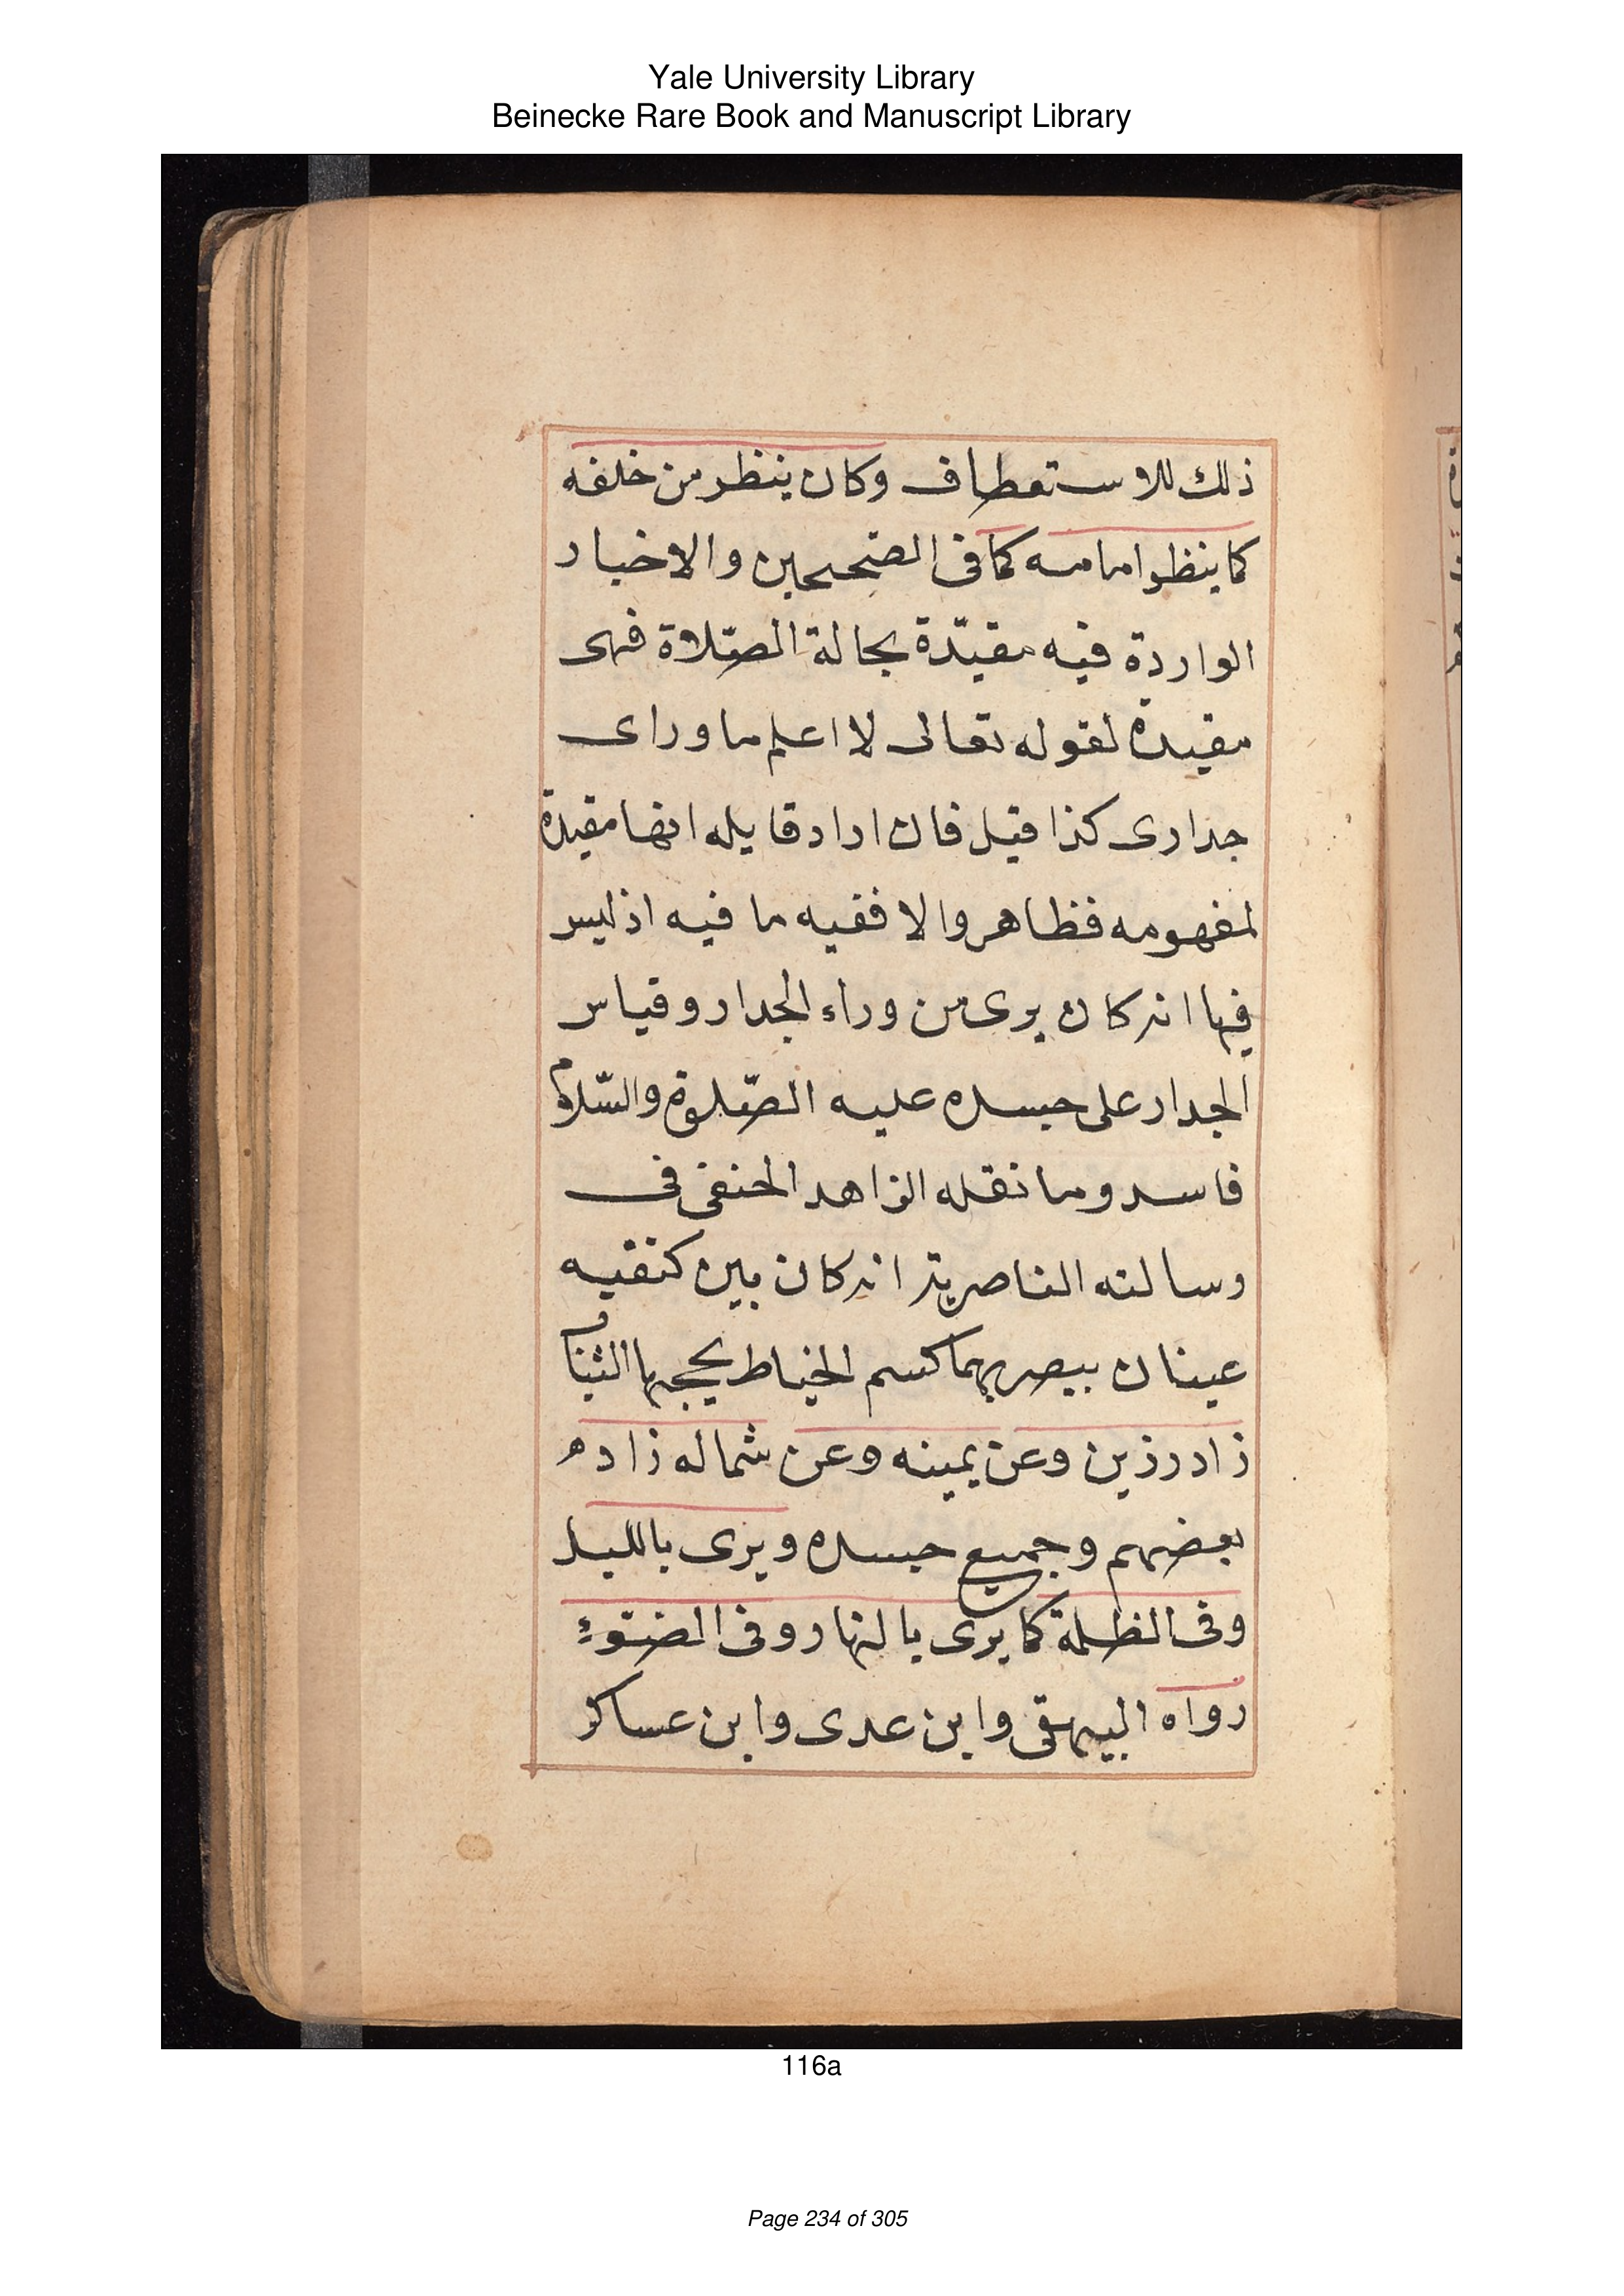 Yale University Library
Beinecke Rare Book and Manuscript Library
ذلك للاستعطاف وكان ينظر من خلفه
كما ينظر امامه كما فى الصحيحين والاخبار
الواردة فيه مقيّدة بحالة الصّلاة فهى
مقيدة لقوله تعالى لا اعلم ما وراى
جدارى كذا قيل فان اراد قايله انها مقيدة
لمفهومه فظاهر والا ففيه ما فيه اذ ليس
فيها انه كان يرى من وراء الجدار وقياس
الجدار على جسده عليه الصّلوة والسّلام
فاسد وما نقله الزاهد الحنفى فى
رسالته الناصرية انه كان بين كتفيه
عينان يبصر بهما كسم الخياط يحجبها الثياب
زاد رزين وعن يمينه وعن شماله زاد
بعضهم وجميع جسده ويرى بالليل
وفى الظلمة كما يرى بالنهار وفى الضّوء
رواه البيهقى وابن عدى وابن عساكر
116a
Page 234 of 305